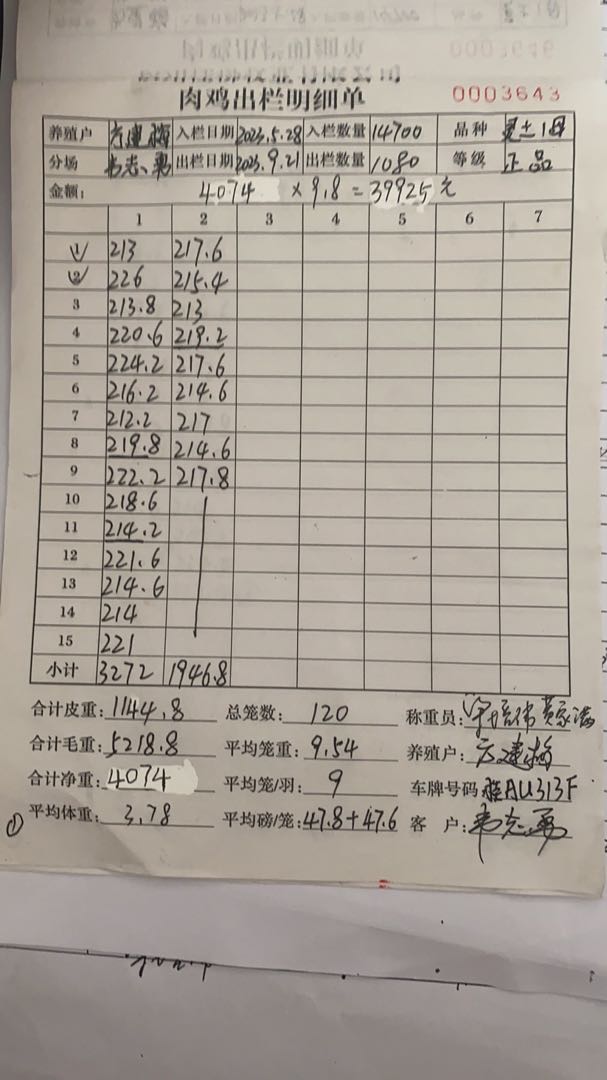 肉鸡出栏明细单 0003643
养殖户 方建梅 入栏日期 2023.5.28 入栏数量 14700 品种 灵土1母
分场 韦志勇 出栏日期 2023.9.21 出栏数量 1080 等级 正品
金额: 4074 × 9.8 = 39925元
1 2 3 4 5 6 7
1 213 217.6
2 226 215.4
3 213.8 213
4 220.6 219.2
5 224.2 217.6
6 216.2 214.6
7 212.2 217
8 219.8 214.6
9 222.2 217.8
10 218.6
11 214.2
12 221.6
13 214.6
14 214
15 221
小计 3272 1946.8
合计皮重: 1144.8 总笼数: 120 称重员:
合计毛重: 5218.8 平均笼重: 9.54 养殖户: 方建梅
合计净重: 4074 平均笼/羽: 9 车牌号码 桂AU313F
① 平均体重: 3.78 平均磅/笼: 47.8+47.6 客户: 韦志勇